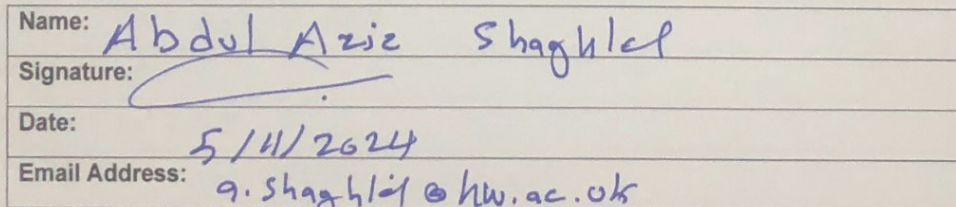 Name: Abdul Aziz Shaghlel
Signature:
Date: 5/11/2024
Email Address: a.shaghlel@hw.ac.uk